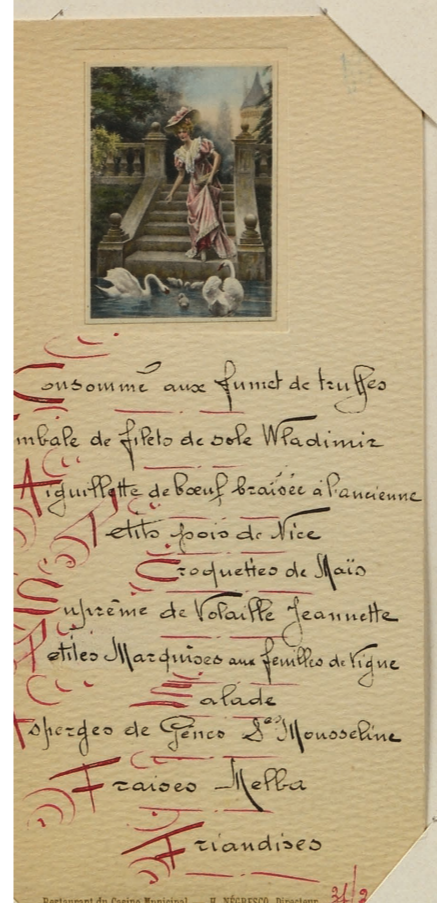 Consommé aux fumet de truffes
imbale de filets de sole Wladimir
Aiguillette de bœuf braisée à l'ancienne
Petits pois de Nice
Croquettes de Maïs
Suprême de Volaille Jeannette
Petites Marquises aux feuilles de Vigne
Salade
Asperges de Gênes Sce Mousseline
Fraises Melba
Friandises
Restaurant du Casino Municipal H. NÉGRESCO, Directeur